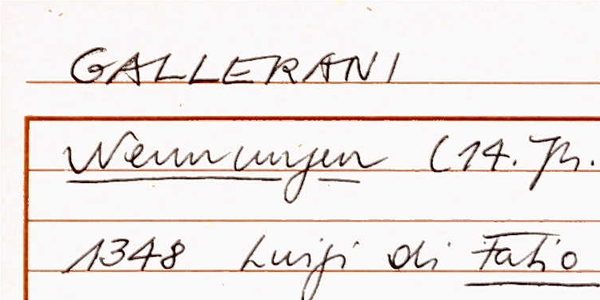 GALLERANI
Nennungen (14. Jh.
1348 Luigi di Fatio